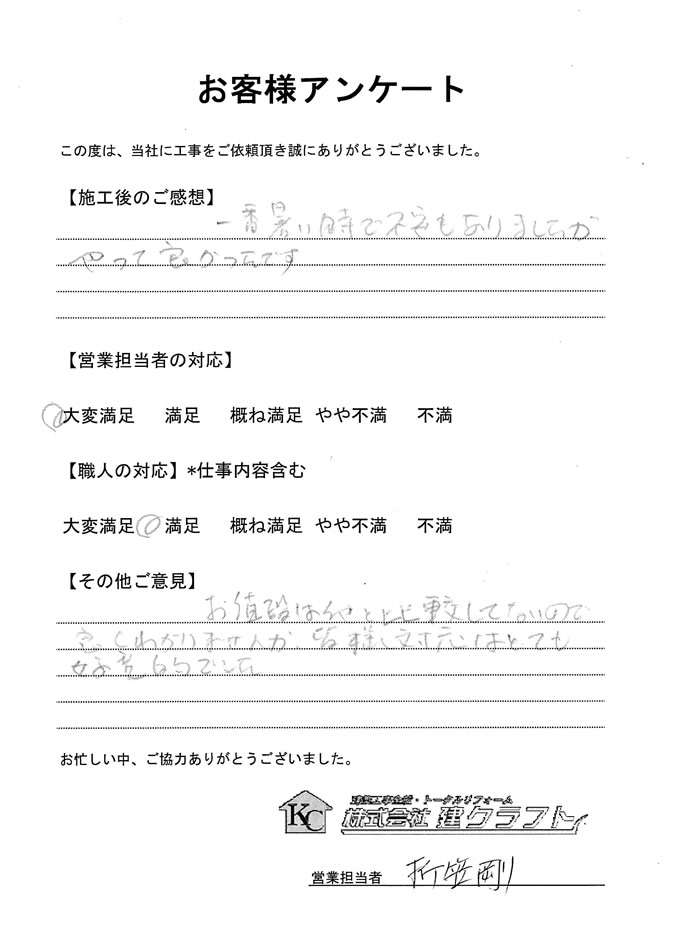 お客様アンケート
この度は、当社に工事をご依頼頂き誠にありがとうございました。
【施工後のご感想】
一番暑い時で不安もありましたが
やって良かったです
【営業担当者の対応】
大変満足 満足 概ね満足 やや不満 不満
【職人の対応】*仕事内容含む
大変満足 満足 概ね満足 やや不満 不満
【その他ご意見】
お値段は他と比較してないので
良くわかりませんが 皆様の対応はとても
好意的でした
お忙しい中、ご協力ありがとうございました。
建築工事全般・トータルリフォーム
KC 株式会社 建クラフト
営業担当者 折笠剛